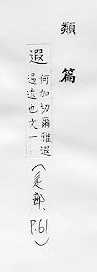 類篇
遐
何加切爾雅遐
遠也文一
(辵部、P.61)